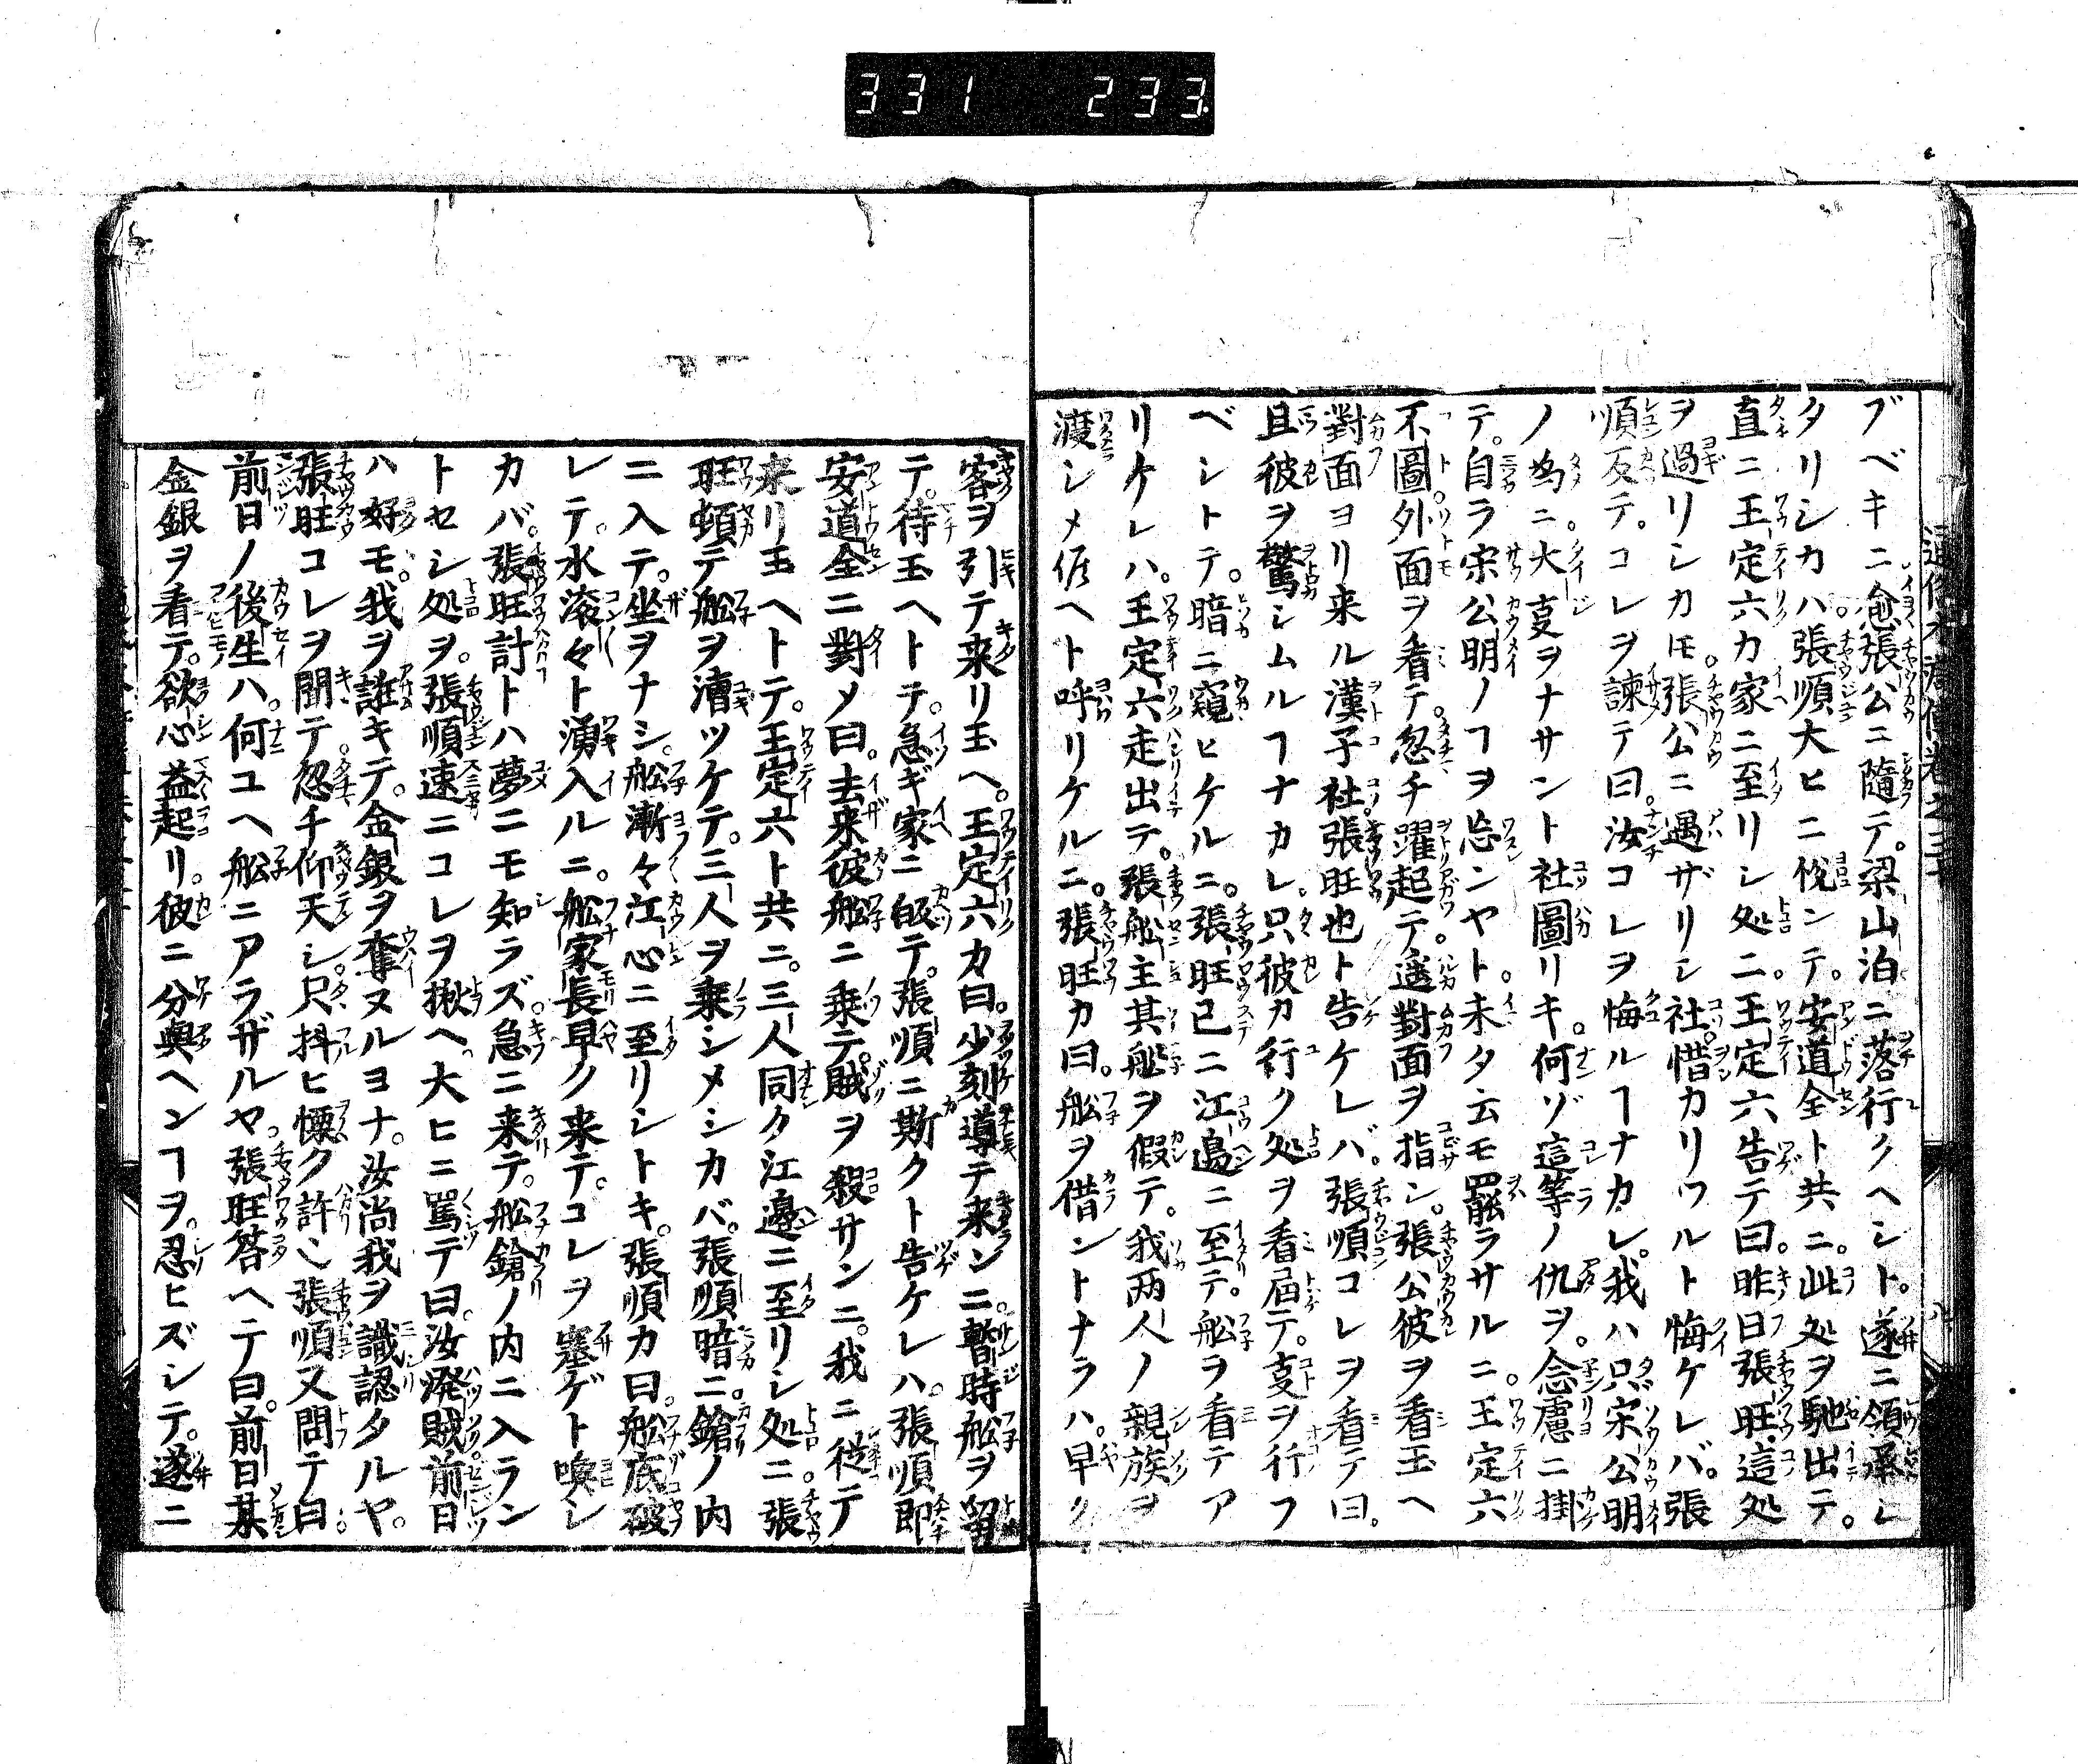 331 233
ブベキニ愈張公ニ隨テ。梁山泊ニ落行クヘシト。遂ニ領承シ
タリシカハ。張順大ヒニ悅ンテ。安道全ト共ニ。此処ヲ馳出テ。
直ニ王定六カ家ニ至リシ処ニ。王定六告テ曰。昨日張旺這処
ヲ過リシカ𪜈。張公ニ遇ザリシ社。惜カリツルト悔ケレバ。張
順反テ。コレヲ諫テ曰。汝コレヲ悔ルヿナカレ。我ハ只宋公明
ノ為ニ。大㕝ヲナサント社圖リキ。何ゾ這等ノ仇ヲ。念慮ニ掛
テ。自ラ宋公明ノヿヲ忘ンヤト。未タ云モ罷ラサルニ。王定六
不圖外面ヲ看テ。忽チ躍起テ。遥對面ヲ指シ。張公彼ヲ看玉ヘ
對面ヨリ来ル漢子社。張旺也ト告ケレバ。張順コレヲ看テ曰。
且彼ヲ驚シムルヿナカレ。只彼カ行ク処ヲ看届テ。㕝ヲ行フ
ベシトテ。暗ニ窺ヒケルニ。張旺已ニ江邉ニ至テ。船ヲ看テア
リケレハ。王定六走出テ。張船主其船ヲ假テ。我両人ノ親族ヲ
渡シメ㑚ヘト呼リケルニ。張旺カ曰。船ヲ借ントナラハ。早ク
客ヲ引テ来リ玉ヘ。王定六カ曰。少刻導テ来ンニ。暫時船ヲ留
テ。待玉ヘトテ。急ギ家ニ皈テ。張順ニ斯クト告ケレハ。張順即
安道全ニ對メ曰。去来彼船ニ乗テ。賊ヲ殺サンニ。我ニ從テ
来リ玉ヘトテ。王定六ト共ニ。三人同ク江邉ニ至リシ処ニ。張
旺頓テ船ヲ漕ツケテ。三人ヲ乗シメシカバ。張順暗ニ。鎗ノ内
ニ入テ。坐ヲナシ。船漸々江心ニ至リシトキ。張順カ曰。船底破
レテ。水滚々ト湧入ルニ。船家長早ク来テ。コレヲ塞ゲト喚シ
カバ。張旺計トハ夢ニモ知ラズ。急ニ来テ。船鎗ノ内ニ入ラン
トセシ処ヲ。張順速ニコレヲ揪ヘ。大ヒニ罵テ曰。汝潑賊前日
ハ好モ。我ヲ誰キテ。金銀ヲ奪ヌルヨナ。汝尚我ヲ識認タルヤ。
張旺コレヲ聞テ。忽チ仰天シ。只抖ヒ慄ク許ニ張順又問テ曰
前日ノ後生ハ。何ユヘ船ニアラザルヤ。張旺答ヘテ曰。前日某
金銀ヲ看テ。欲心益起リ。彼ニ分與ヘンヿヲ。忍ヒズシテ。遂ニ